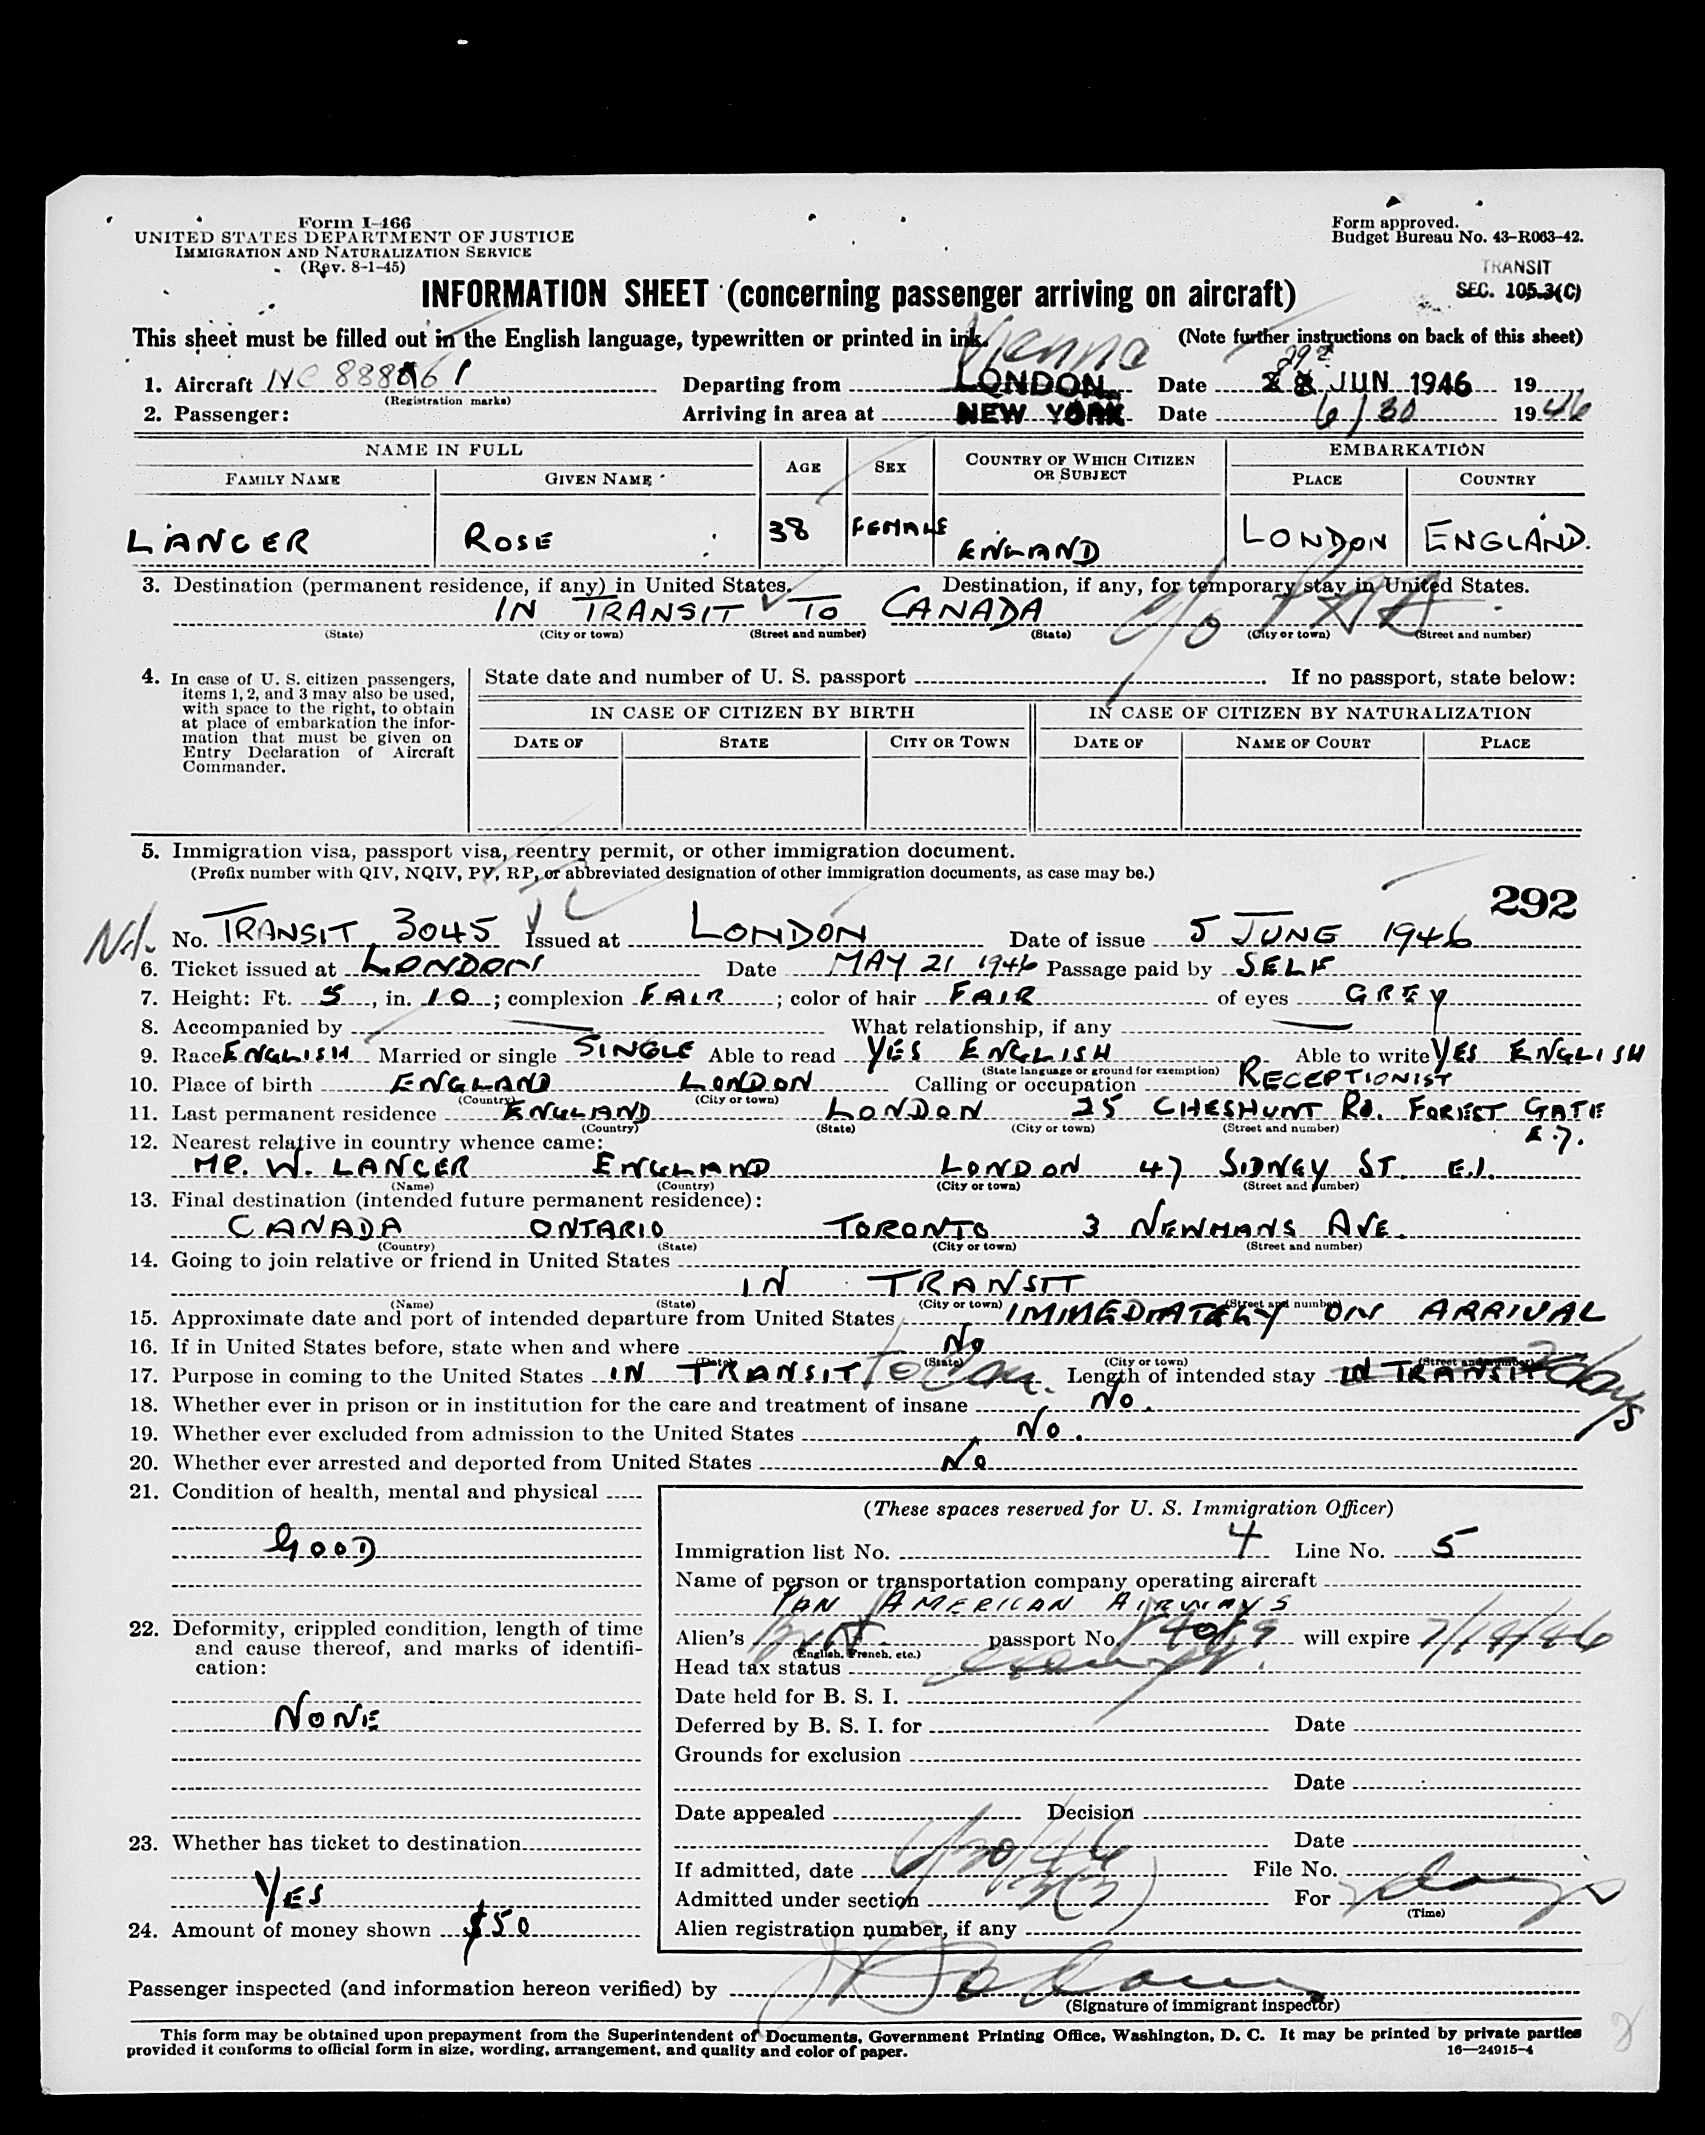 Form I-466
UNITED STATES DEPARTMENT OF JUSTICE
IMMIGRATION AND NATURALIZATION SERVICE
(Rev. 8-1-45)
Form approved.
Budget Bureau No. 43-R063-42.
TRANSIT
SEC. 105.3(C)
INFORMATION SHEET (concerning passenger arriving on aircraft)
This sheet must be filled out in the English language, typewritten or printed in ink. (Note further instructions on back of this sheet)
Vienna 29
1. Aircraft NC 88861 Departing from LONDON Date 28 JUN 1946 19
(Registration marks)
2. Passenger: Arriving in area at NEW YORK Date 6/30 1946
NAME IN FULL AGE SEX COUNTRY OF WHICH CITIZEN OR SUBJECT EMBARKATION
FAMILY NAME GIVEN NAME PLACE COUNTRY
LANCER ROSE 38 FEMALE ENGLAND LONDON ENGLAND.
3. Destination (permanent residence, if any) in United States. Destination, if any, for temporary stay in United States.
IN TRANSIT TO CANADA c/o PAA
(State) (City or town) (Street and number) (State) (City or town) (Street and number)
4. In case of U. S. citizen passengers, items 1, 2, and 3 may also be used, with space to the right, to obtain at place of embarkation the information that must be given on Entry Declaration of Aircraft Commander.
State date and number of U. S. passport . If no passport, state below:
IN CASE OF CITIZEN BY BIRTH IN CASE OF CITIZEN BY NATURALIZATION
DATE OF STATE CITY OR TOWN DATE OF NAME OF COURT PLACE
5. Immigration visa, passport visa, reentry permit, or other immigration document.
(Prefix number with QIV, NQIV, PV, RP, or abbreviated designation of other immigration documents, as case may be.)
292
No. TRANSIT 3045 Issued at LONDON Date of issue 5 JUNE 1946
6. Ticket issued at LONDON Date MAY 21 1946 Passage paid by SELF
7. Height: Ft. 5, in. 10; complexion FAIR; color of hair FAIR of eyes GREY
8. Accompanied by — What relationship, if any —
9. Race ENGLISH Married or single SINGLE Able to read YES ENGLISH Able to write YES ENGLISH
(State language or ground for exemption)
10. Place of birth ENGLAND LONDON Calling or occupation RECEPTIONIST
(Country) (City or town)
11. Last permanent residence ENGLAND LONDON 25 CHESHUNT RD. FOREST GATE E.7.
(Country) (State) (City or town) (Street and number)
12. Nearest relative in country whence came:
MR. W. LANCER ENGLAND LONDON 47 SIDNEY ST. E.1.
(Name) (Country) (City or town) (Street and number)
13. Final destination (intended future permanent residence):
CANADA ONTARIO TORONTO 3 NEWMANS AVE.
(Country) (State) (City or town) (Street and number)
14. Going to join relative or friend in United States
IN TRANSIT
(Name) (State) (City or town) (Street and number)
15. Approximate date and port of intended departure from United States IMMEDIATELY ON ARRIVAL
16. If in United States before, state when and where No
(Date) (State) (City or town) (Street and number)
17. Purpose in coming to the United States IN TRANSIT to Can. Length of intended stay IN TRANSIT 2 days
18. Whether ever in prison or in institution for the care and treatment of insane No.
19. Whether ever excluded from admission to the United States No.
20. Whether ever arrested and deported from United States No
21. Condition of health, mental and physical
GOOD
22. Deformity, crippled condition, length of time and cause thereof, and marks of identification:
NONE
23. Whether has ticket to destination
YES
24. Amount of money shown $50
(These spaces reserved for U. S. Immigration Officer)
Immigration list No. 4 Line No. 5
Name of person or transportation company operating aircraft
PAN AMERICAN AIRWAYS
Alien's Brit. passport No. will expire 7/18/46
(English, French, etc.)
Head tax status
Date held for B. S. I.
Deferred by B. S. I. for Date
Grounds for exclusion
Date
Date appealed Decision
Date
If admitted, date 6/30/46 File No.
Admitted under section 3(3) For 2 days
(Time)
Alien registration number, if any
Passenger inspected (and information hereon verified) by
(Signature of immigrant inspector)
This form may be obtained upon prepayment from the Superintendent of Documents, Government Printing Office, Washington, D. C. It may be printed by private parties
provided it conforms to official form in size, wording, arrangement, and quality and color of paper. 16—24915-4